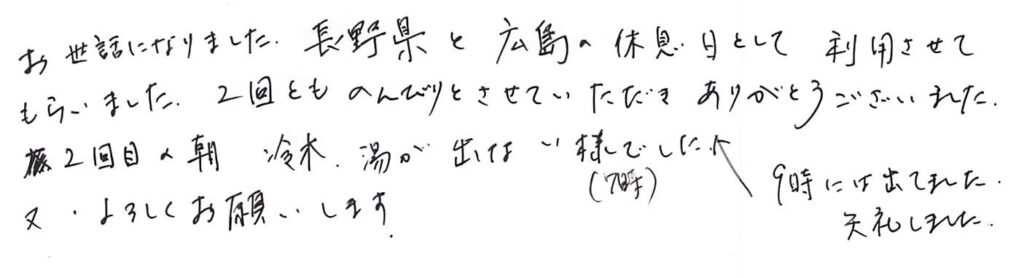 お世話になりました. 長野県と広島の休息日として利用させて
もらいました. 2回とものんびりとさせていただき ありがとうございました.
2回目の朝 冷水. 湯が出ない様でした.
(7時)
9時には出てました.
失礼しました.
又・よろしくお願いします.